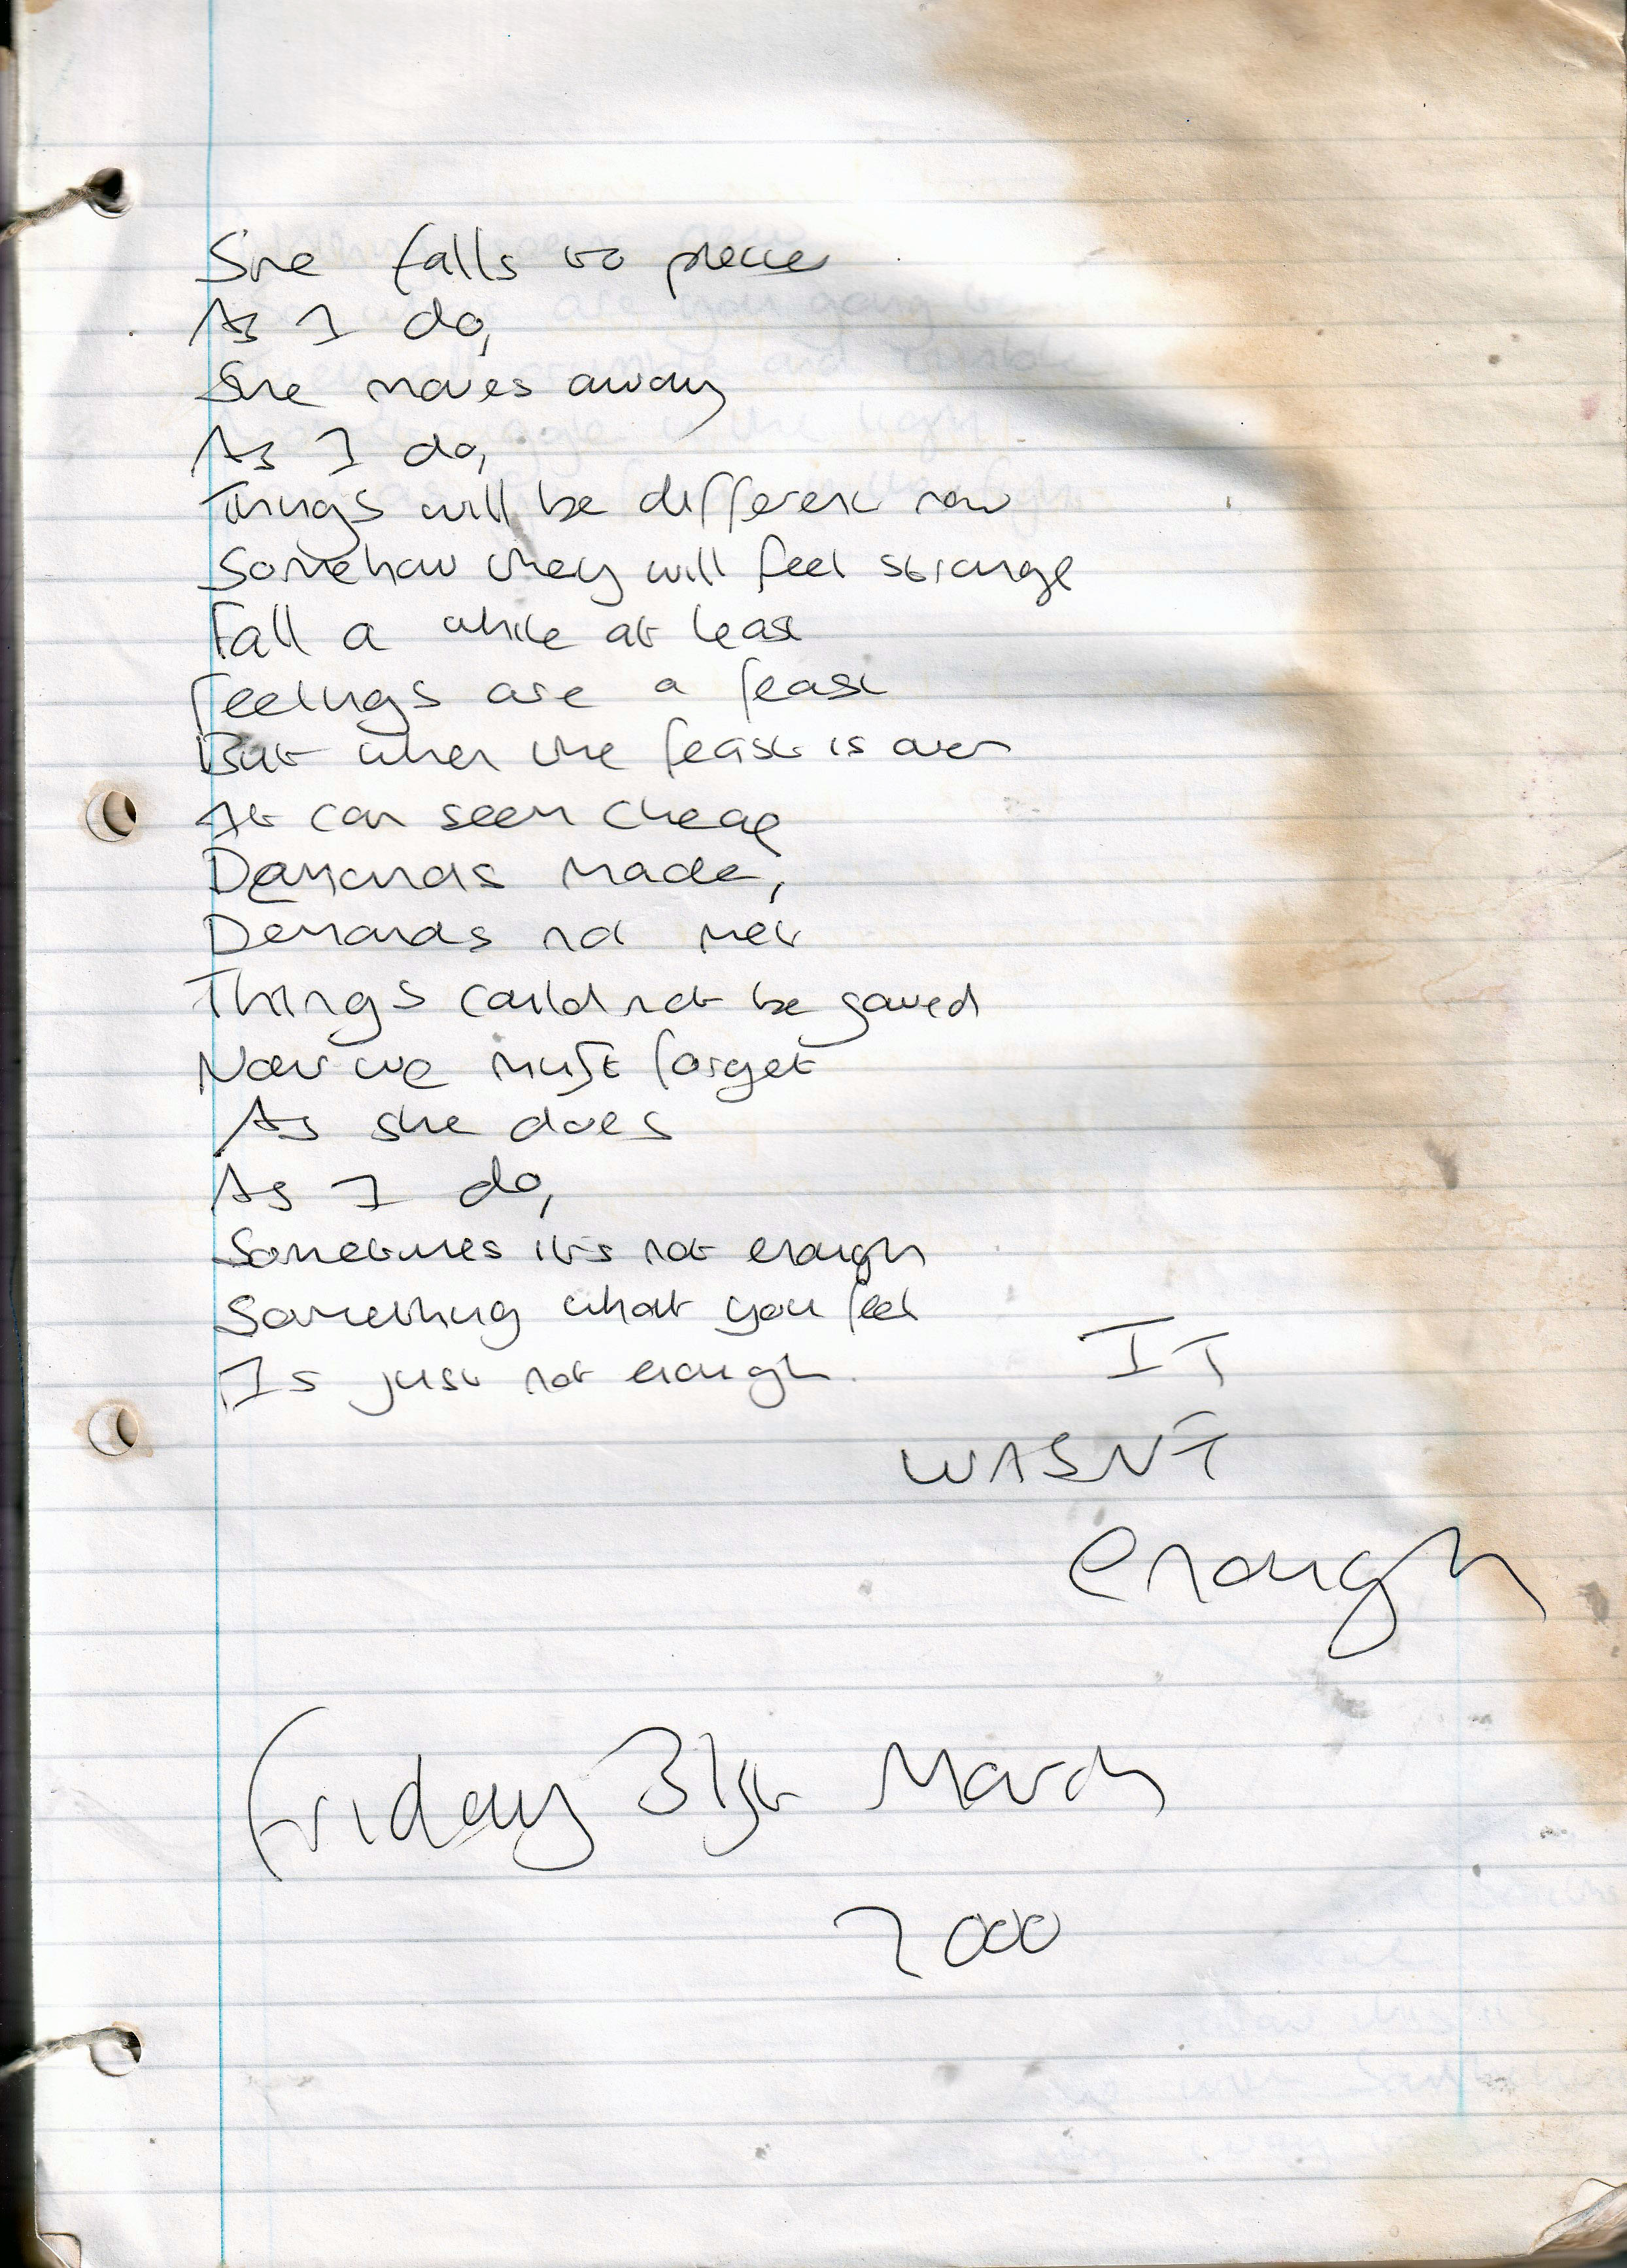 She falls to pieces
As I do,
She moves away
As I do,
Things will be different now
Somehow they will feel strange
Fall a while at least
Feelings are a feast
But when the feast is over
It can seem cheap
Demands made,
Demands not met
Things could not be saved
Now we must forget
As she does
As I do,
Sometimes it's not enough
Something what you feel
Is just not enough.
IT
WASNT
enough
Friday 31st March
2000